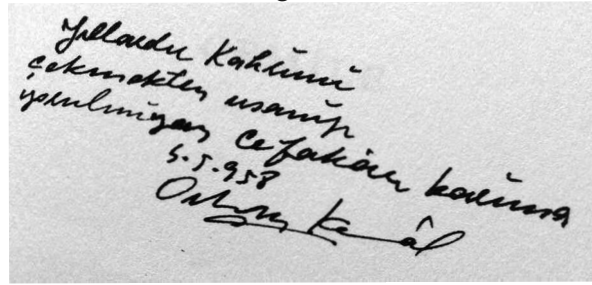 Yıllardır Kahrımı
çekmekten usanıp
yorulmıyan cefakâr karıma
5.5.958
Orhan Kemâl